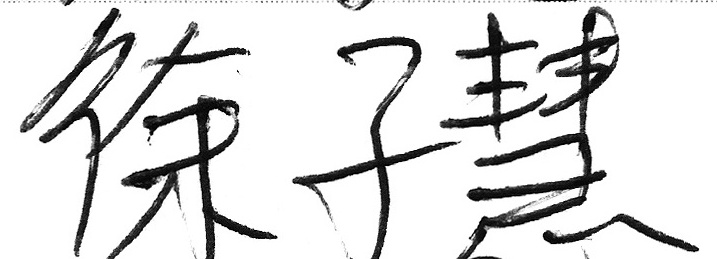 徐子慧